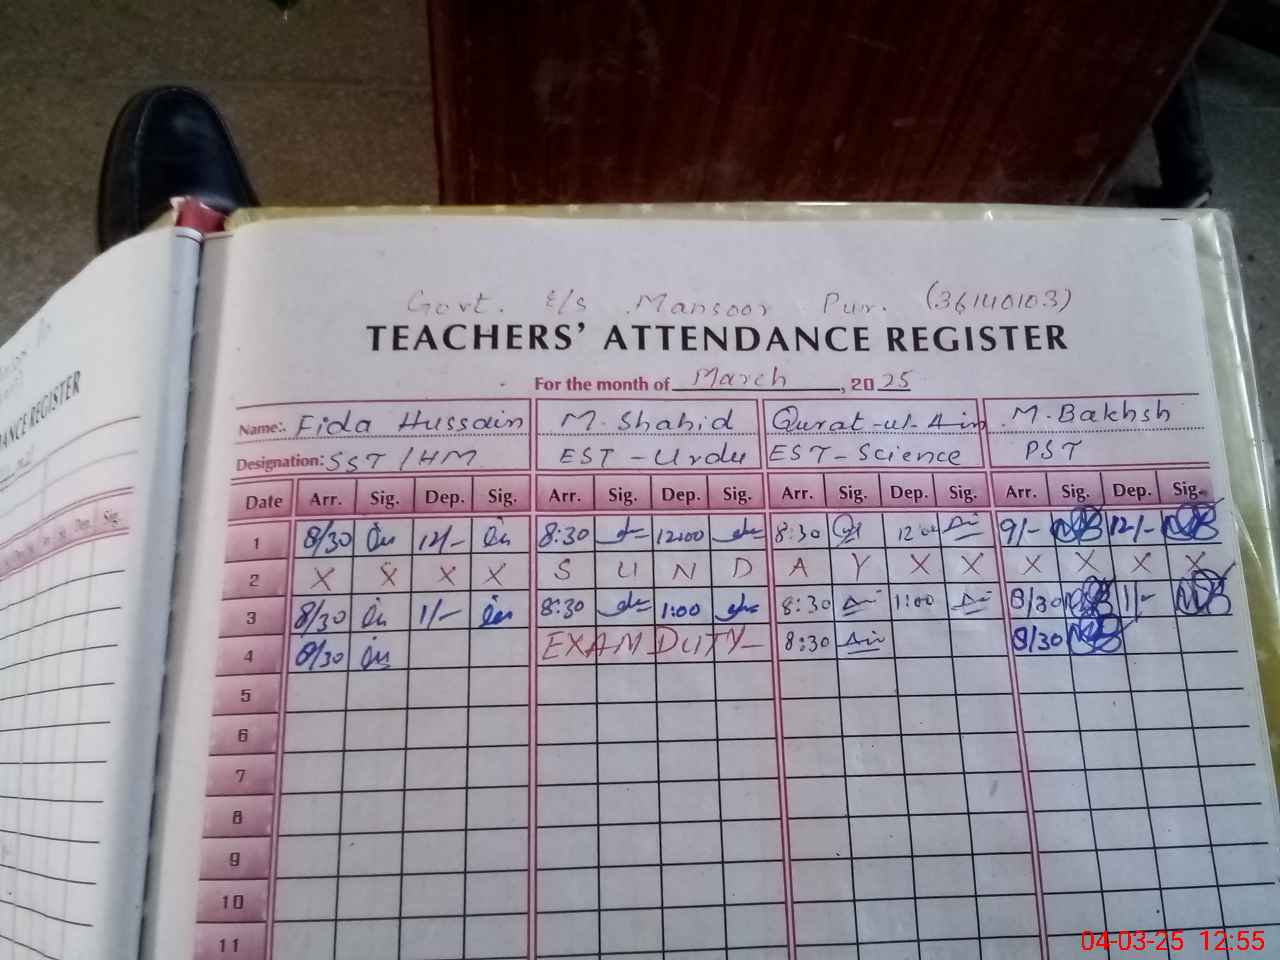 Govt. E/S Mansoor Pur. (36140103)
TEACHERS' ATTENDANCE REGISTER
For the month of March, 2025
Name: Fida Hussain M. Shahid Qurat-ul-Ain M. Bakhsh
Designation: SST/HM EST-Urdu EST-Science PST
Date Arr. Sig. Dep. Sig. Arr. Sig. Dep. Sig. Arr. Sig. Dep. Sig. Arr. Sig. Dep. Sig.
1 8/30 12/- 8:30 12:00 8:30 12:00 9/- 12/-
2 X X X X S U N D A Y X X X X X X
3 8/30 1/- 8:30 1:00 8:30 1:00 8/30 1/-
4 8/30 EXAM DUTY 8:30 8/30
5
6
7
8
9
10
11
ANCE REGISTER
Dep. Sig.
04-03-25 12:55